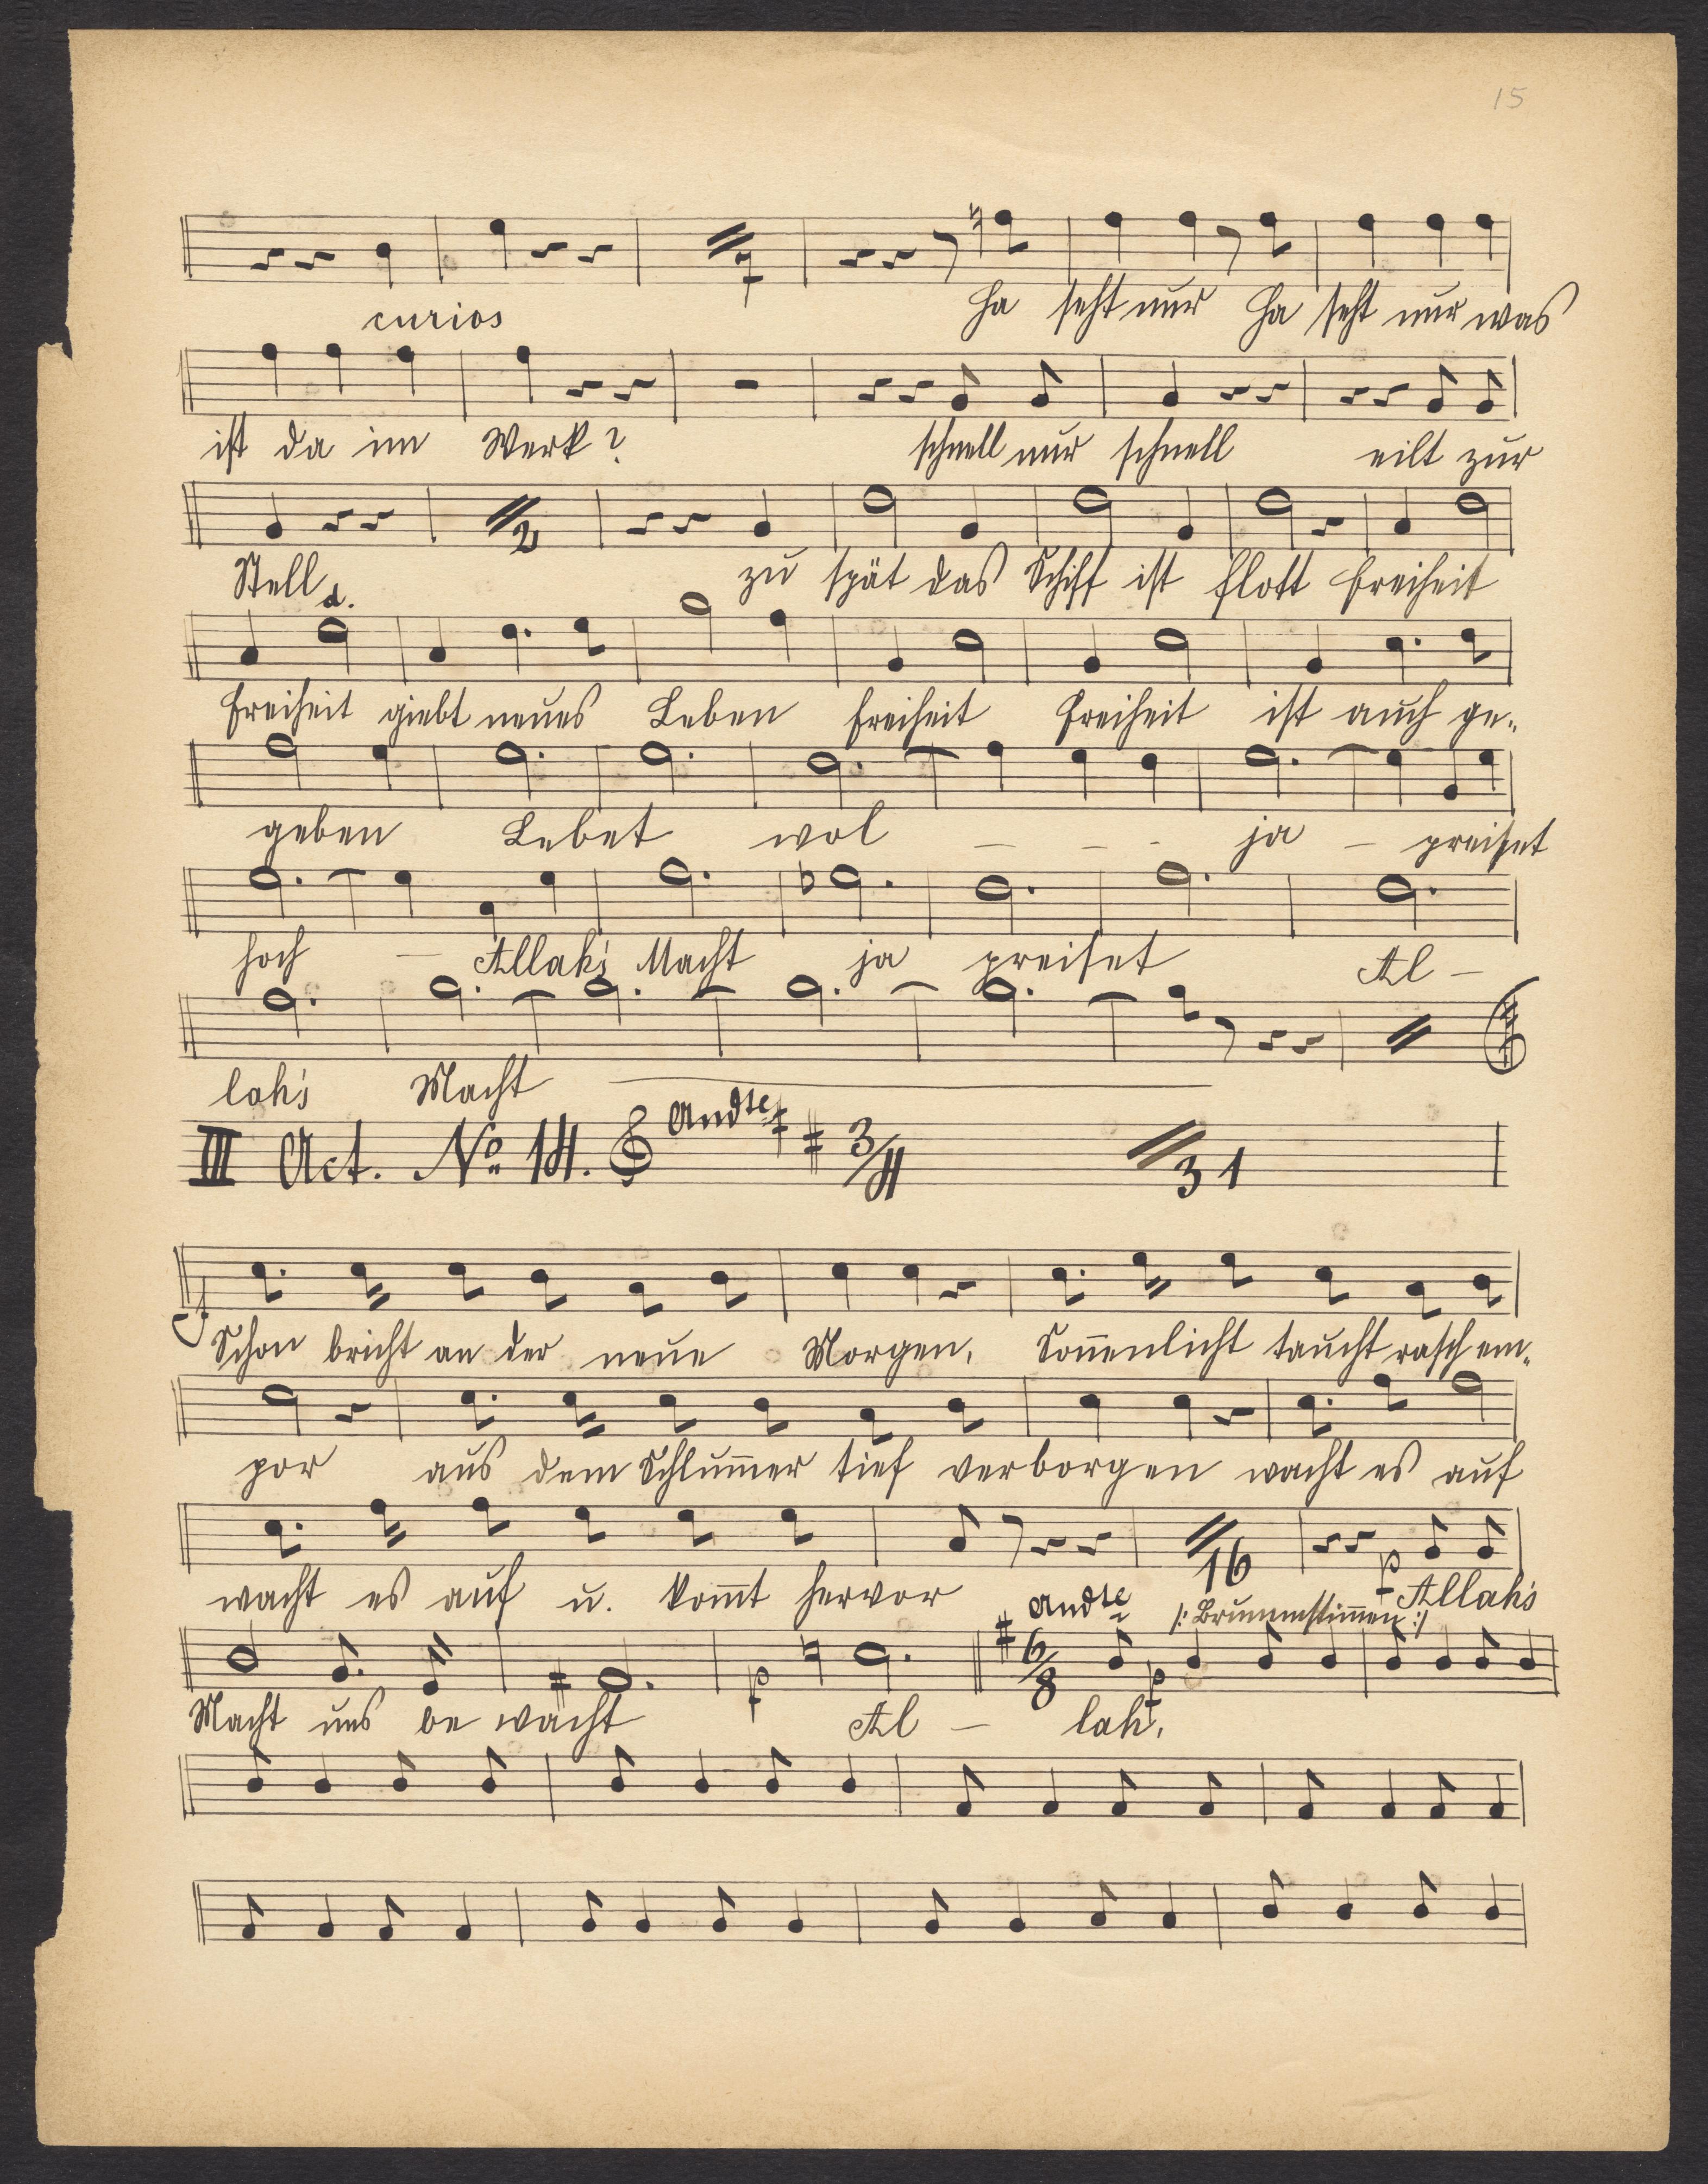 15
curios Ha seht nur Ha seht nur was
ist da im Werk? schnell nur schnell eilt zur
2
Stell zu spät das Schiff ist flott Freiheit
d.
Freiheit giebt neues Leben Freiheit Freiheit ist auch ge-
geben Lebet wol - - - ja - preiset
hoch - Allah's Macht ja preiset Al -
lah's Macht
III Act. No. 14. Andte 3/4 31
Schon bricht an der neue Morgen, Son̄enlicht taucht rasch em-
por aus dem Schlum̄er tief verborgen wacht es auf
16 p
wacht es auf u. kom̄t hervor Allah's
Andte /: Brummstim̄en :/
p 6/8 p
Macht uns be wacht Al - lah,